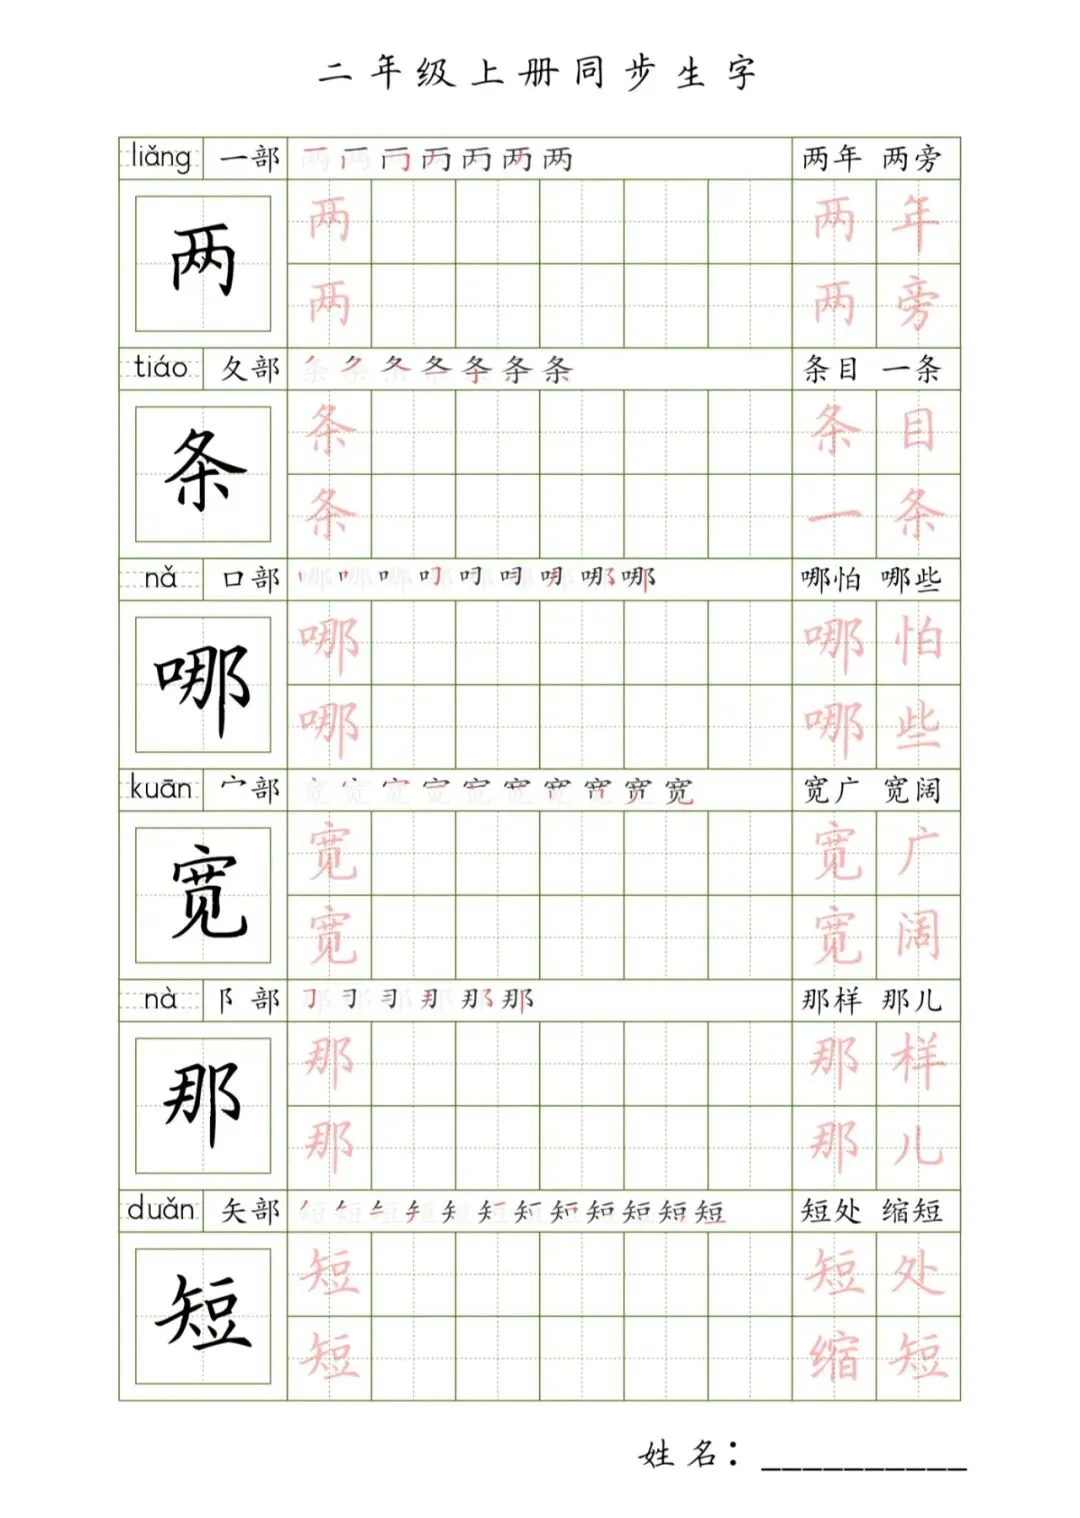 二年级上册同步生字
liǎng 一部 两两两两两两两 两年 两旁
两 两 两年
两 两旁
tiáo 夂部 条条条条条条条 条目 一条
条 条 条目
条 一条
nǎ 口部 哪哪哪哪哪哪哪哪哪 哪怕 哪些
哪 哪 哪怕
哪 哪些
kuān 宀部 宽宽宽宽宽宽宽宽宽宽 宽广 宽阔
宽 宽 宽广
宽 宽阔
nà 阝部 那那那那那那 那样 那儿
那 那 那样
那 那儿
duǎn 矢部 短短短短短短短短短短短短 短处 缩短
短 短 短处
短 缩短
姓名：__________